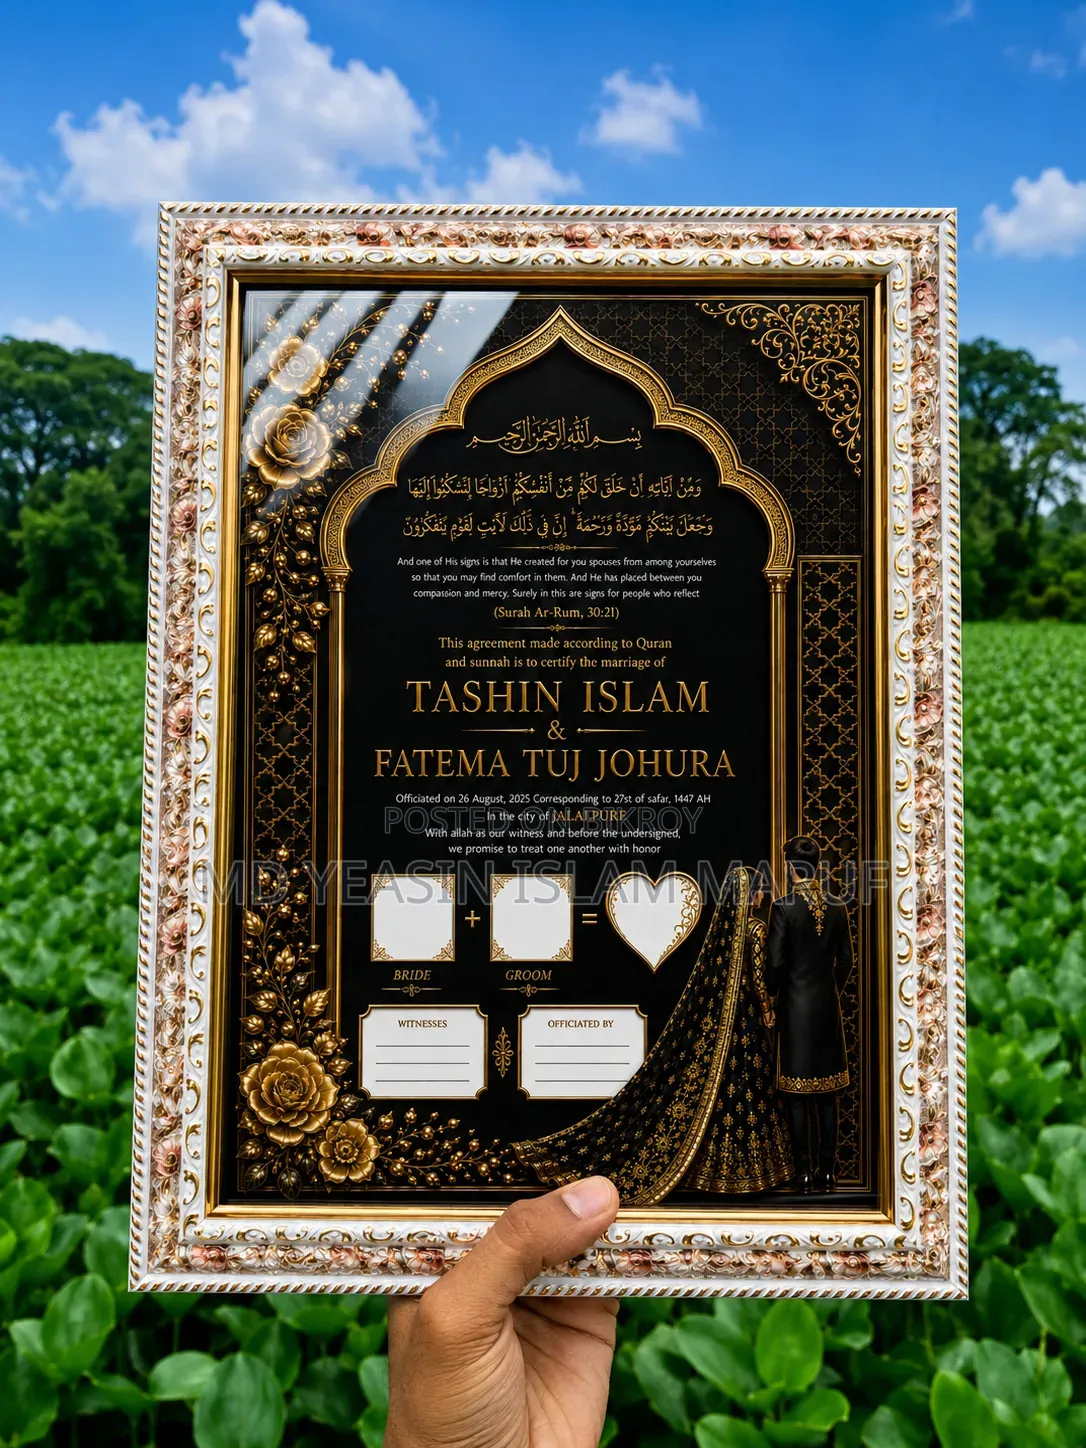 بِسْمِ اللَّهِ الرَّحْمَنِ الرَّحِيمِ
وَمِنْ آيَاتِهِ أَنْ خَلَقَ لَكُمْ مِّنْ أَنْفُسِكُمْ أَزْوَاجًا لِّتَسْكُنُوا إِلَيْهَا
وَجَعَلَ بَيْنَكُمْ مَّوَدَّةً وَرَحْمَةً ۚ إِنَّ فِي ذَٰلِكَ لَآيَاتٍ لِّقَوْمٍ يَتَفَكَّرُونَ
And one of His signs is that He created for you spouses from among yourselves
so that you may find comfort in them. And He has placed between you
compassion and mercy. Surely in this are signs for people who reflect
(Surah Ar-Rum, 30:21)
This agreement made according to Quran
and sunnah is to certify the marriage of
TASHIN ISLAM
&
FATEMA TUJ JOHURA
Officiated on 26 August, 2025 Corresponding to 27st of safar, 1447 AH
In the city of JALALPURE
POSTED ON BIKROY
With allah as our witness and before the undersigned,
we promise to treat one another with honor
MD YEASIN ISLAM MARUF
+ =
BRIDE GROOM
WITNESSES OFFICIATED BY